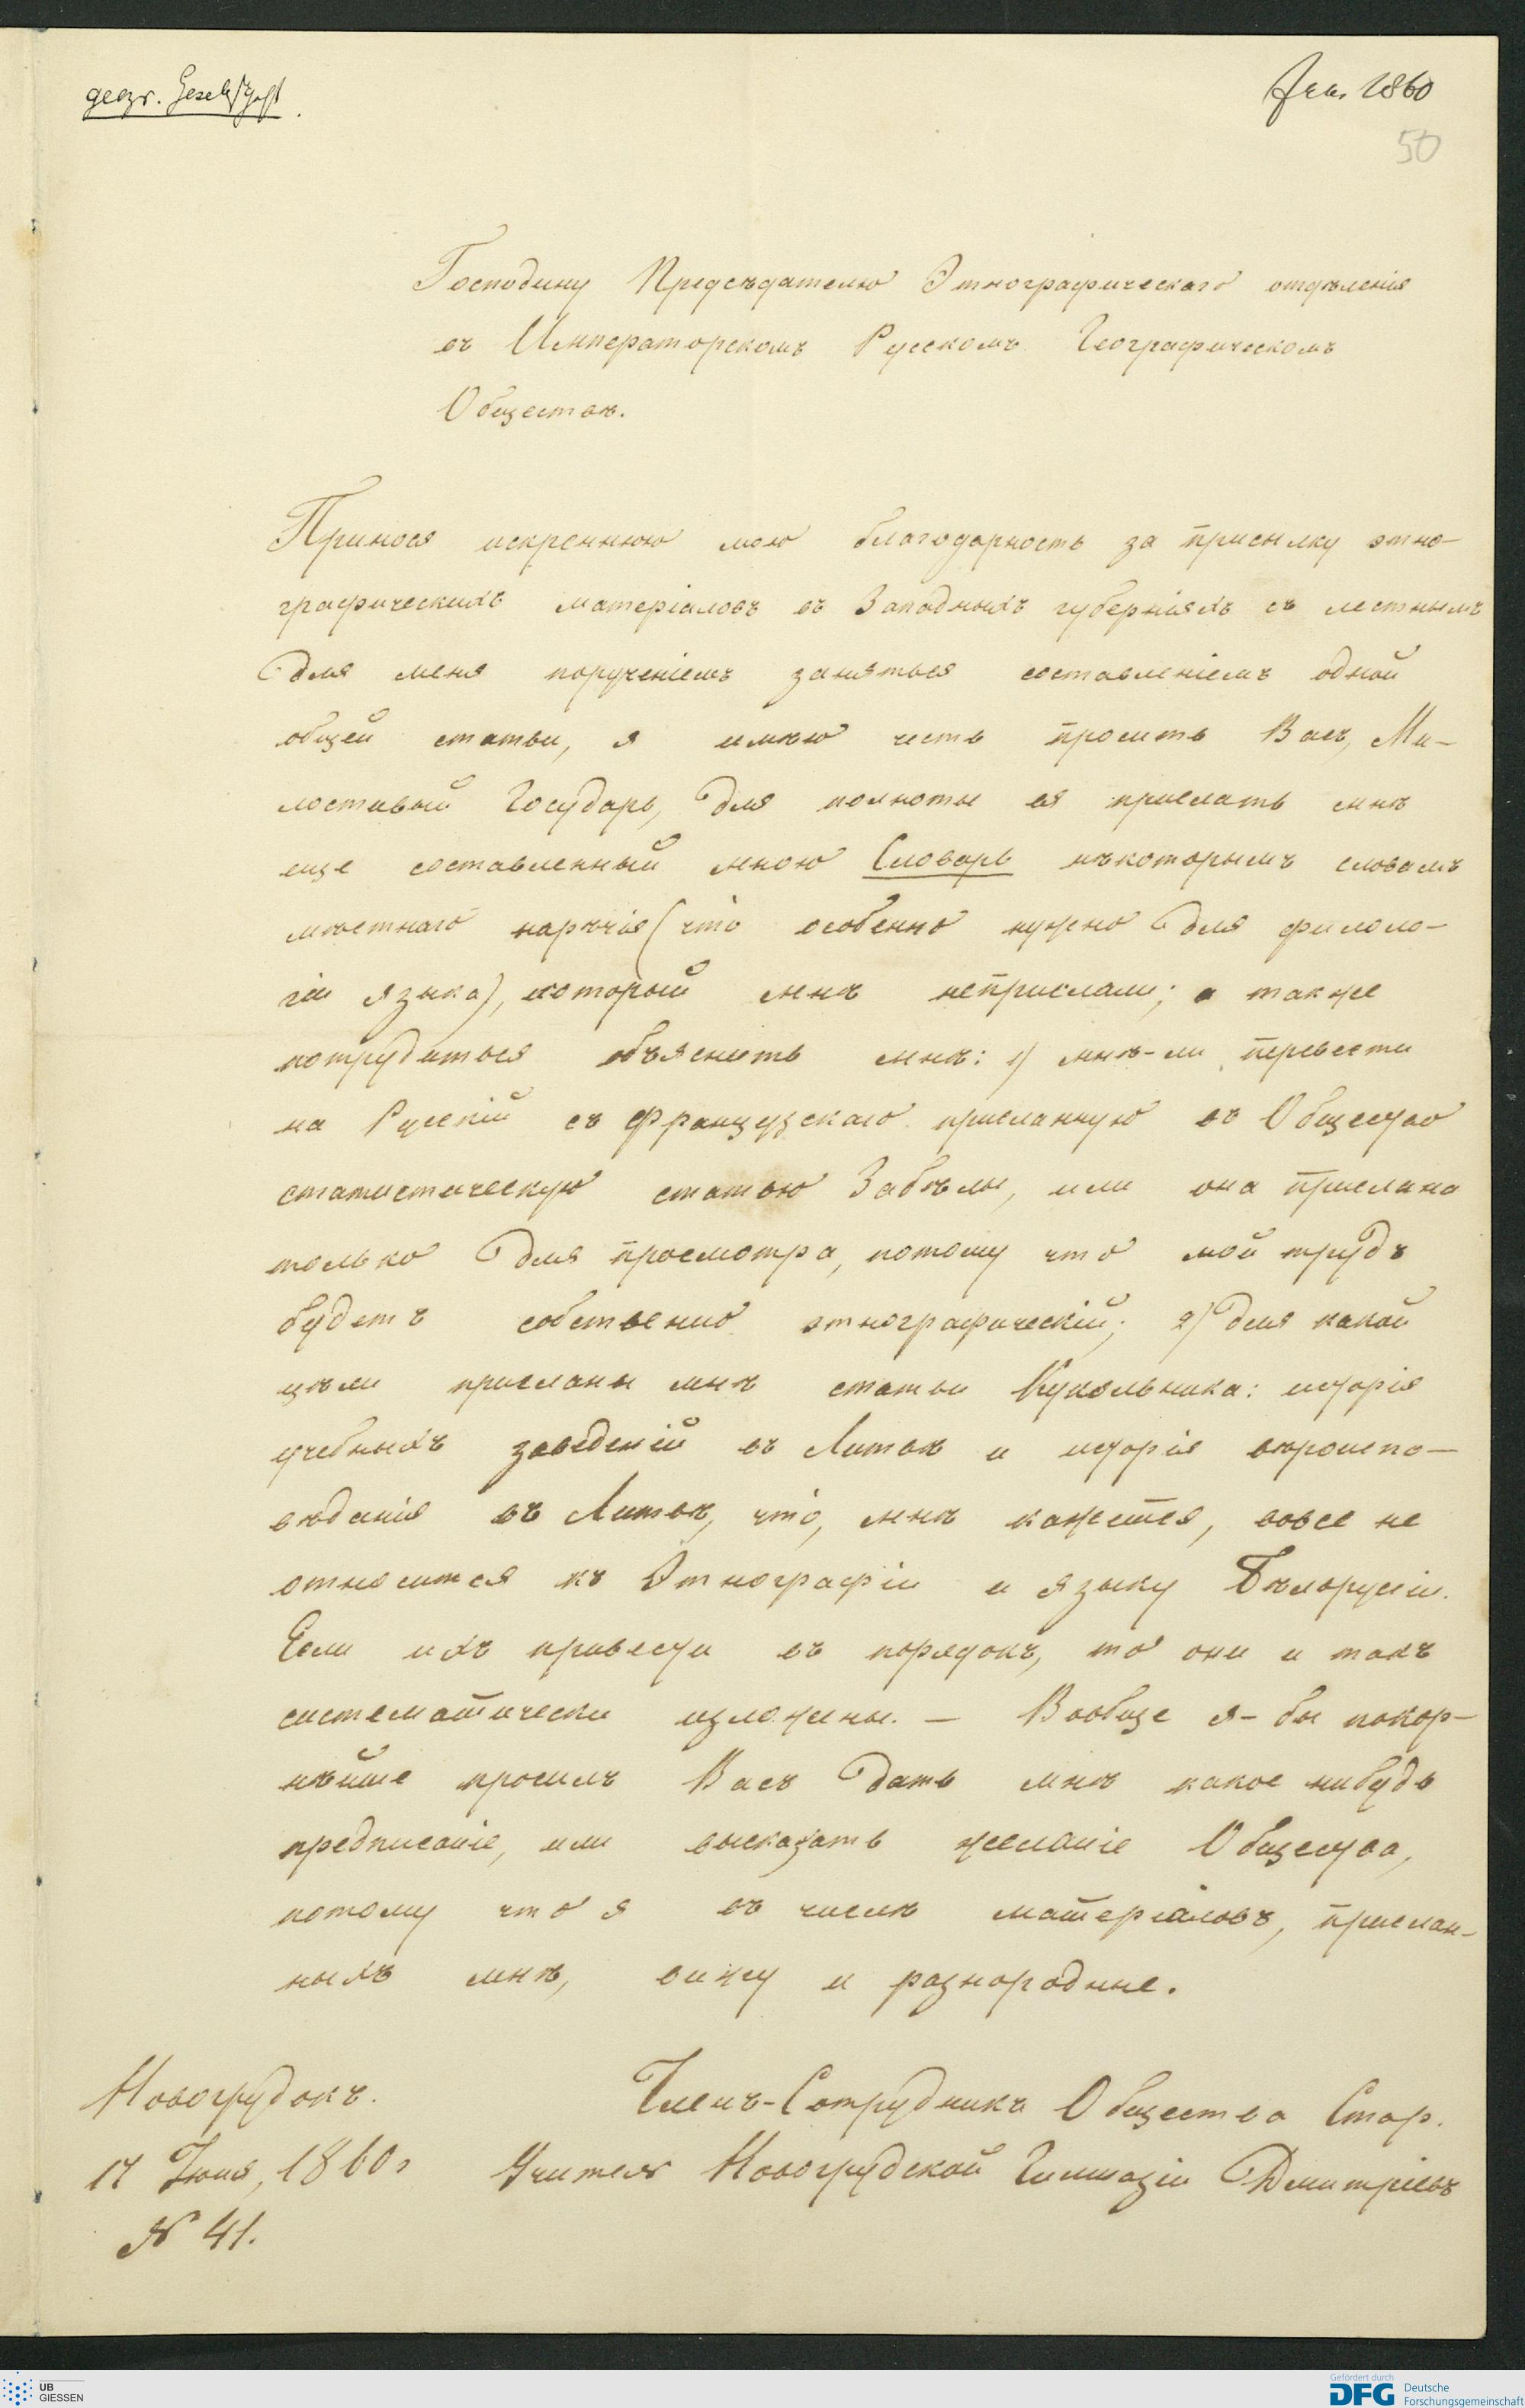 geogr. Gesellschaft.
1860
50
Господину Предсѣдателю Этнографическаго отдѣленія
въ Императорскомъ Русскомъ Географическомъ
Обществѣ.
Принося искреннюю мою благодарность за присылку этно-
графическихъ матеріаловъ въ Западныхъ губерніяхъ съ лестнымъ
для меня порученіемъ заняться составленіемъ одной
общей статьи, я имѣю честь просить Васъ, Ми-
лостивый Государь, для полноты ея прислать мнѣ
еще составленный мною Словарь нѣкоторымъ словамъ
мѣстнаго нарѣчія (что особенно нужно для филоло-
гіи языка), который мнѣ неприслали; а также
потрудиться объяснить мнѣ: 1) мнѣ-ли перевести
на Русскій съ французскаго присланную въ Общество
статистическую статью Забѣлы, или она прислана
только для просмотра, потому что мой трудъ
будетъ собственно этнографическій; 2) для какой
цѣли присланы мнѣ статьи Кукольника: исторія
учебныхъ заведеній въ Литвѣ и исторія вѣроиспо-
вѣданія въ Литвѣ, что, мнѣ кажется, вовсе не
относится къ Этнографіи и языку Бѣлорусіи.
Если ихъ привести въ порядокъ, то они и такъ
систематически изложены. — Вообще я-бы покор-
нѣйше просилъ Васъ дать мнѣ какое нибудь
предписаніе, или высказать желаніе Общества,
потому что я въ числѣ матеріаловъ, прислан-
ныхъ мнѣ, вижу и разнородные.
Новогрудокъ.
Членъ-Сотрудникъ Общества Стар.
17 Іюня, 1860 г
Учитель Новогрудской Гимназіи Дмитріевъ
№ 41.
UB
GIESSEN
Gefördert durch
DFG Deutsche
Forschungsgemeinschaft